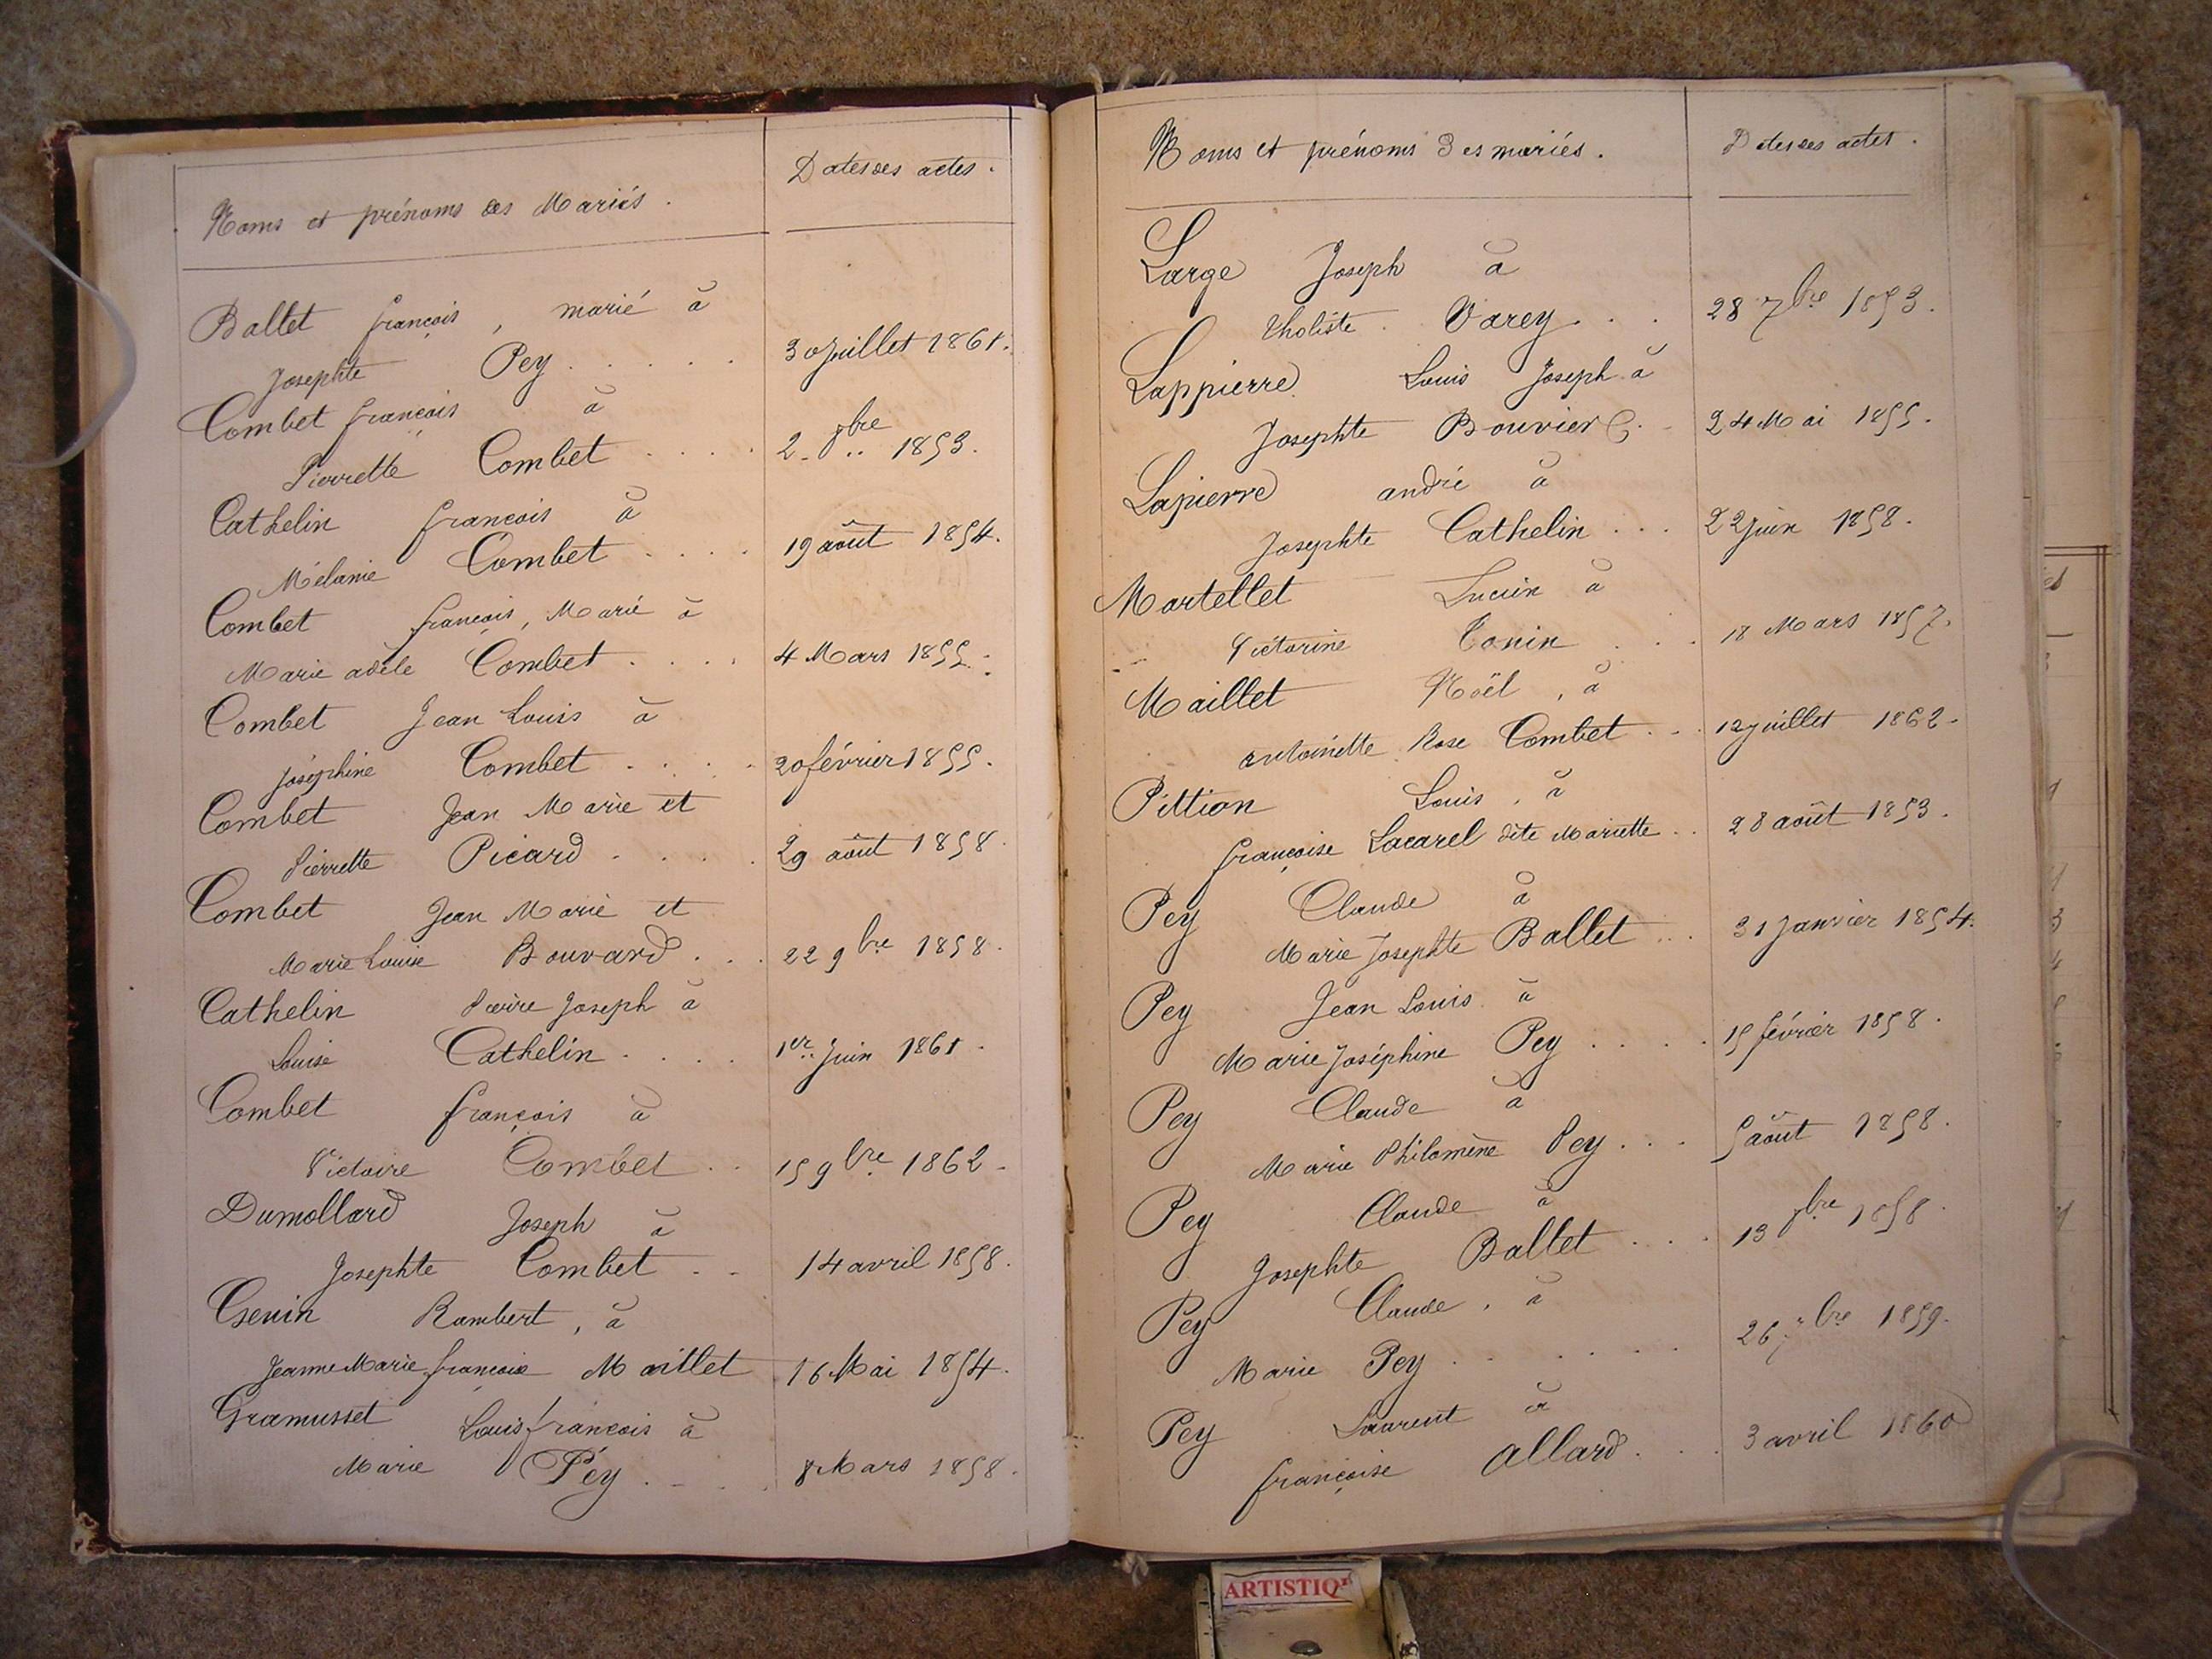 Noms et prénoms des Mariés. Dates des actes.
Ballet françois, marié à
Josephte Pey..... 30 juillet 1861.
Combet françois à
Pierrette Combet.... 2. 8bre 1853.
Cathelin françois à
Mélanie Combet.... 19 août 1854.
Combet françois, Marié à
Marie adèle Combet.... 4 Mars 1855.
Combet Jean Louis à
joséphine Combet.... 20 février 1855.
Combet Jean Marie et
Pierrette Picard.... 29 août 1858.
Combet Jean Marie et
Marie Louise Bouvard... 22 9bre 1858.
Cathelin Pierre Joseph à
Louise Cathelin.... 1er Juin 1861.
Combet françois à
Victoire Combet.. 15 9bre 1862.
Dumollard Joseph à
Josephte Combet.. 14 avril 1858.
Genin Rambert, à
Jeanne Marie françoise Maillet 16 Mai 1854.
Gramusset Louis françois à
Marie Péy.... 8 Mars 1858.
Noms et prénoms des mariés. Dates des actes.
Large Joseph à
Varey... 28 7bre 1853.
Lappierre Louis Joseph à
Josephte Bouvier 24 Mai 1855.
Lapierre andré à
Josephte Cathelin... 22 juin 1858.
Martellet Lucien à
Victorine Tonin... 18 Mars 1857.
Maillet Noël, à
antoinette Rose Combet... 12 juillet 1862.
Pittion Louis, à
françoise Lacarel dite Mariette.. 28 août 1853.
Pey Claude à
Marie Josephte Ballet... 31 Janvier 1854.
Pey Jean Louis à
Marie Joséphine Pey.... 15 février 1858.
Pey Claude à
Marie Philomène Pey... 5 août 1858.
Pey Claude à
Josephte Ballet... 13 8bre 1858.
Pey Claude, à
Marie Pey...... 26 bre 1859.
Pey Laurent à
françoise allard... 3 avril 1860
ARTISTIQ